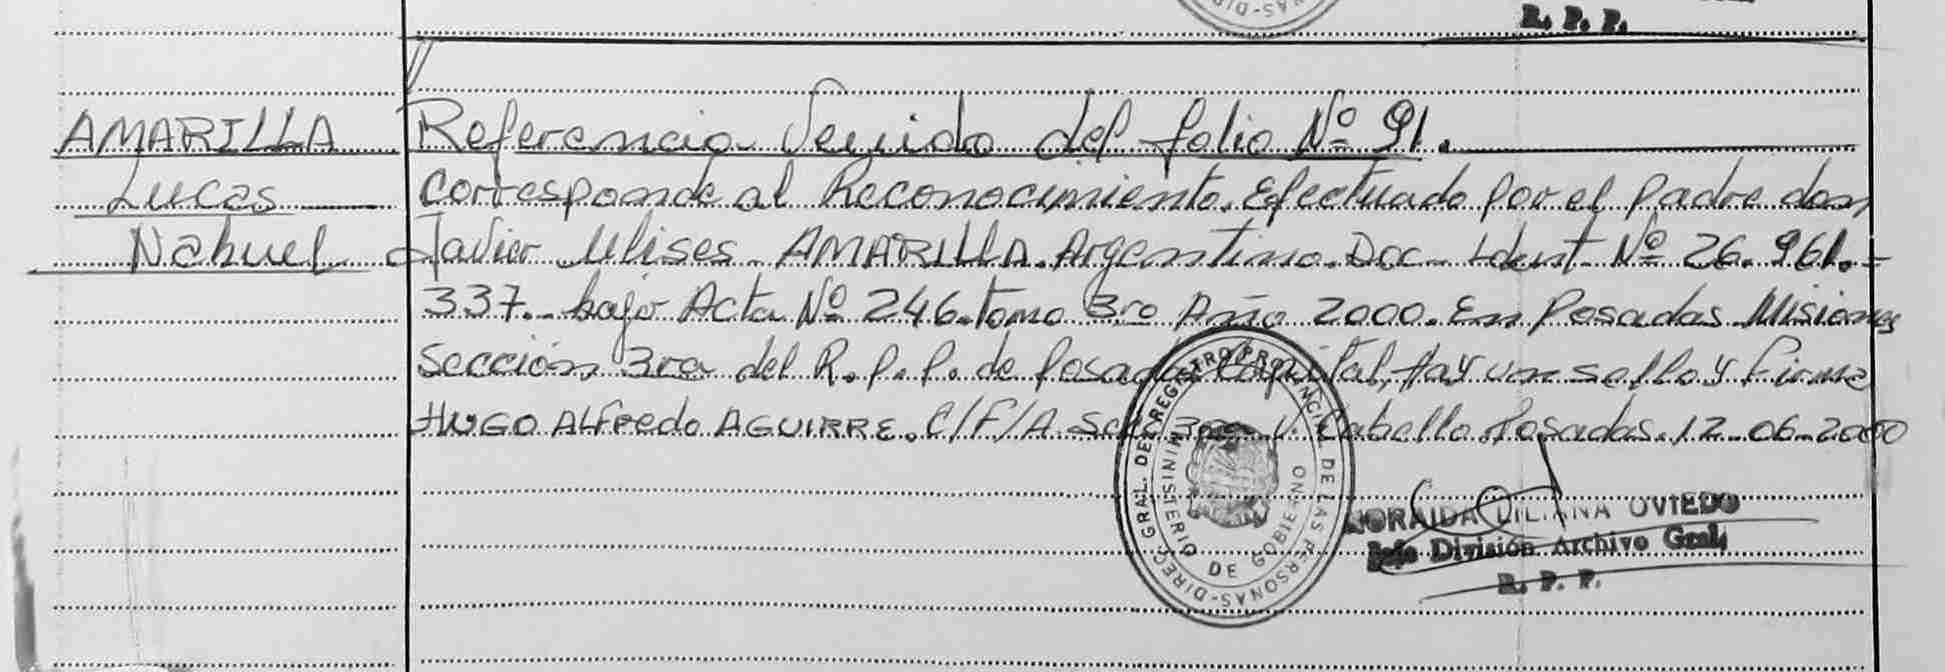 R. P. P.
AMARILLA Referencia Venido del folio Nº 91.
Lucas Corresponde al Reconocimiento. Efectuado por el padre don
Nahuel Javier Ulises AMARILLA. Argentino. Doc. Ident Nº 26.961.-
337.- bajo Acta Nº 246. tomo 3ro Año 2000. En Posadas Misiones
Sección 3ra del R.P.P. de Posadas Capital, Hay un sello y firma
HUGO Alfredo AGUIRRE. C/F/A Secc 3ra V. Cabello. Posadas. 12-06-2000
DIREC. GRAL. DEL REGISTRO PROVINCIAL DE LAS PERSONAS
MINISTERIO DE GOBIERNO
NORAIDA LILIANA OVIEDO
Jefe División Archivo Gral.
R. P. P.